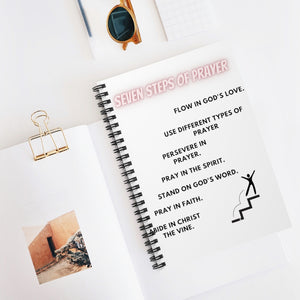 SEVEN STEPS OF PRAYER
FLOW IN GOD'S LOVE.
USE DIFFERENT TYPES OF
PRAYER
PERSEVERE IN
PRAYER.
PRAY IN THE SPIRIT.
STAND ON GOD'S WORD.
PRAY IN FAITH.
ABIDE IN CHRIST
THE VINE.